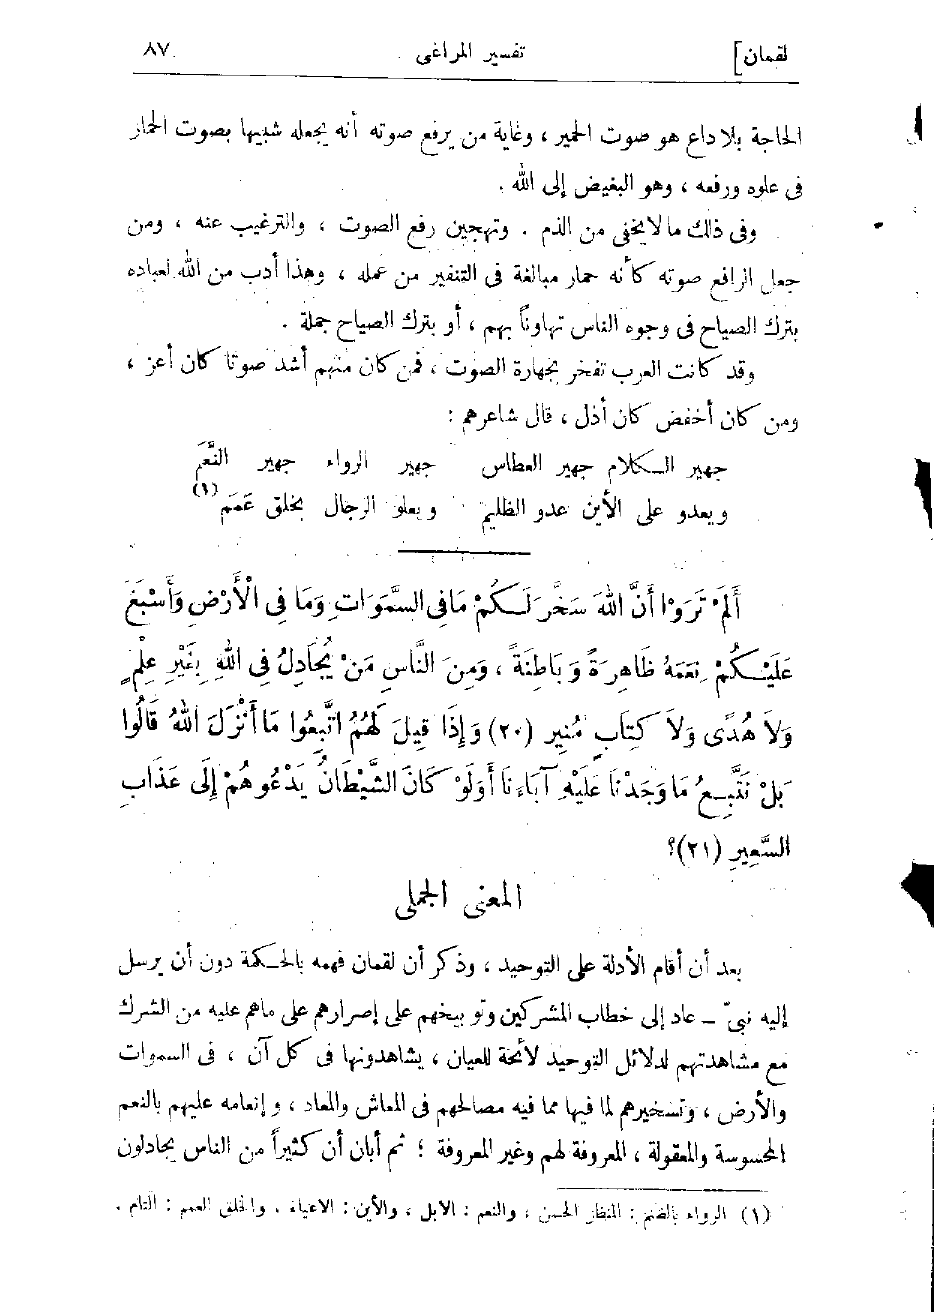 لقمان]
تفسير المراغى
٨٧
الحاجة بلا داع هو صوت الحمير ، وغاية من يرفع صوته أنه يجعله شبيها بصوت الحمار
فى علوه ورفعه ، وهو البغيض إلى الله .
وفى ذلك ما لا يخفى من الذم . وتهجين رفع الصوت ، والترغيب عنه ، ومن
جعل الرافع صوته كأنه حمار مبالغة فى التنفير من عمله ، وهذا أدب من الله لعباده
بترك الصياح فى وجوه الناس تهاوناً بهم ، أو بترك الصياح جملة .
وقد كانت العرب تفخر بجهارة الصوت ، فمن كان منهم أشد صوتا كان أعز ،
ومن كان أخفض كان أذل ، قال شاعرهم :
جهير الكلام جهير العطاس جهير الرواء جهير النَّعَم
ويعدو على الأين عدو الظليم ويعلو الرجال بخلق عَمَم (١)
أَلَمْ تَرَوْا أَنَّ اللهَ سَخَّرَ لَكُمْ مَا فِى السَّمَوَاتِ وَمَا فِى الْأَرْضِ وَأَسْبَغَ
عَلَيْكُمْ نِعَمَهُ ظَاهِرَةً وَبَاطِنَةً ، وَمِنَ النَّاسِ مَنْ يُجَادِلُ فِى اللهِ بِغَيْرِ عِلْمٍ
وَلاَ هُدًى وَلاَ كِتَابٍ مُنِيرٍ (٢٠) وَإِذَا قِيلَ لَهُمُ اتَّبِعُوا مَا أَنْزَلَ اللهُ قَالُوا
بَلْ نَتَّبِعُ مَا وَجَدْنَا عَلَيْهِ آبَاءَنَا أَوَلَوْ كَانَ الشَّيْطَانُ يَدْعُوهُمْ إِلَى عَذَابِ
السَّعِيرِ (٢١)؟
المعنى الجملى
بعد أن أقام الأدلة على التوحيد ، وذكر أن لقمان فهمه بالحكمة دون أن يرسل
إليه نبىّ – عاد إلى خطاب المشركين وتوبيخهم على إصرارهم على ماهم عليه من الشرك
مع مشاهدتهم لدلائل التوحيد لائحة للعيان ، يشاهدونها فى كل آن ، فى السموات
والأرض ، وتسخيرهم لما فيها مما فيه مصالحهم فى المعاش والمعاد ، وإنعامه عليهم بالنعم
المحسوسة والمعقولة ، المعروفة لهم وغير المعروفة ؛ ثم أبان أن كثيراً من الناس يجادلون
(١) الرواء بالضم : المنظر الحسن ، والنعم : الابل ، والأين : الاعياء ، والخلق العمم : التام .